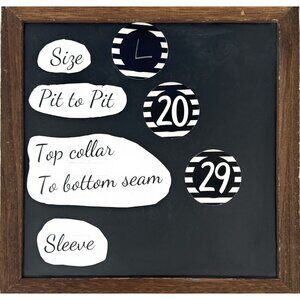 Size L
Pit to Pit 20
Top collar
To bottom seam 29
Sleeve